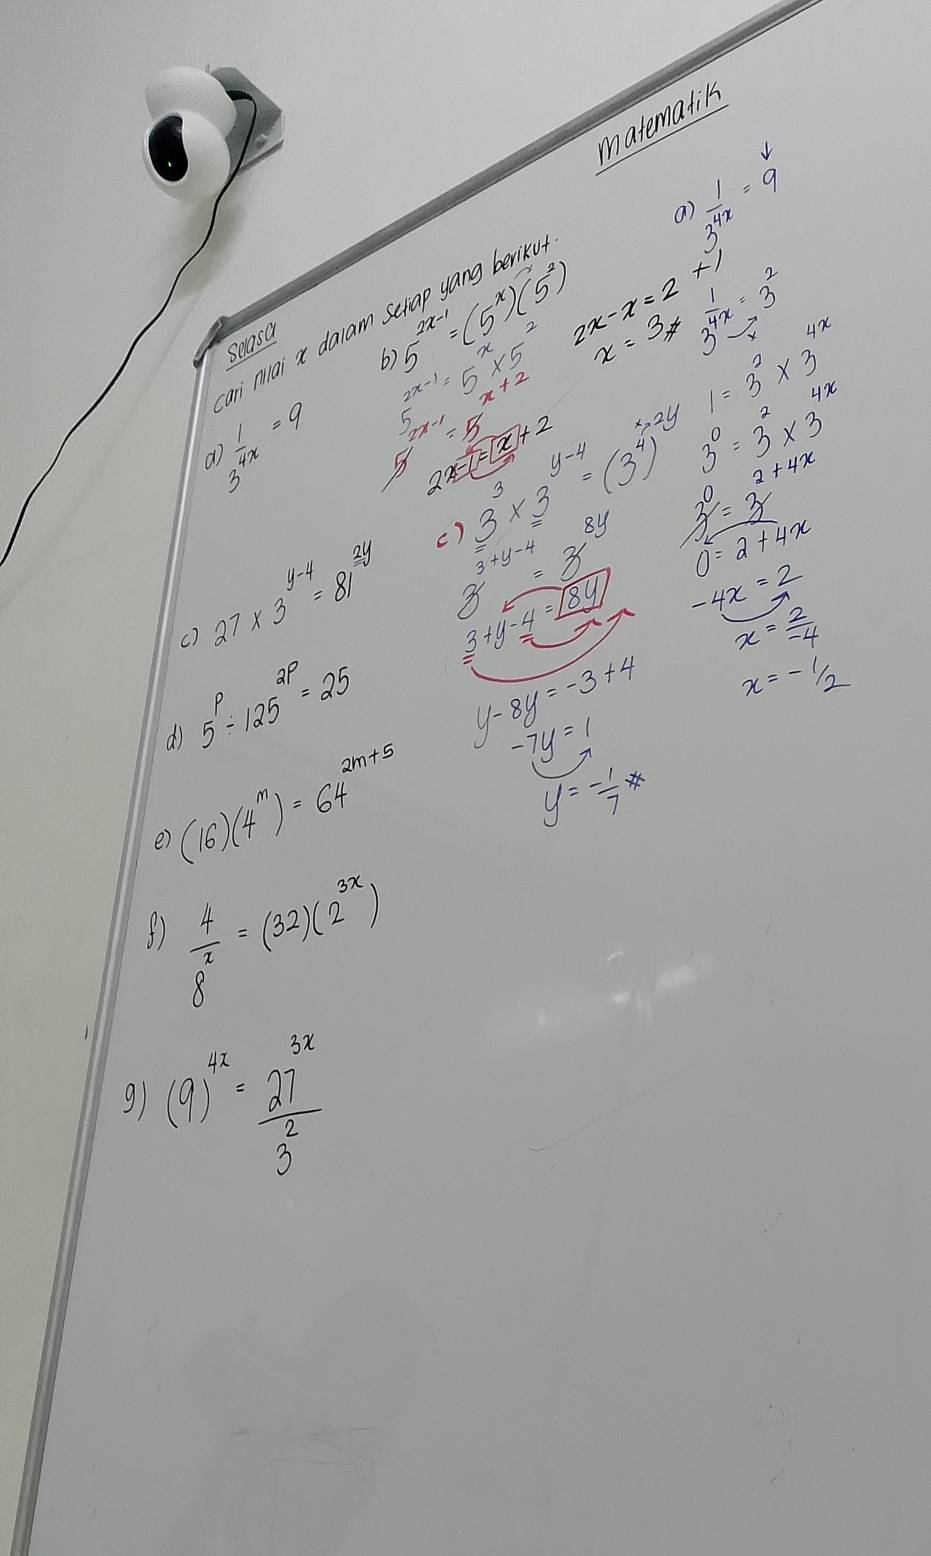 Matematik
Selasa
Cari nilai x dalam setiap yang berikut.
a) 1/3^4x = 9
b) 5^2x-1 = (5^x)(5^2)
5^2x-1 = 5^x × 5^2
5^2x-1 = 5^x+2
2x-1 = x+2
2x-x = 2+1
x = 3 #
c) 27 × 3^y-4 = 81^2y
d) 5^p ÷ 125^2p = 25
e) (16)(4^m) = 64^2m+5
f) 4/8^x = (32)(2^3x)
g) (9)^4x = 27^3x/3^2
c) 3^3 × 3^y-4 = (3^4)^2y
3^3+y-4 = 3^8y
3+y-4 = 8y
y-8y = -3+4
-7y = 1
y = -1/7 #
a) 1/3^4x = 9
1/3^4x = 3^2
1 = 3^2 × 3^4x
3^0 = 3^2 × 3^4x
3^0 = 3^2+4x
0 = 2+4x
-4x = 2
x = 2/-4
x = -1/2